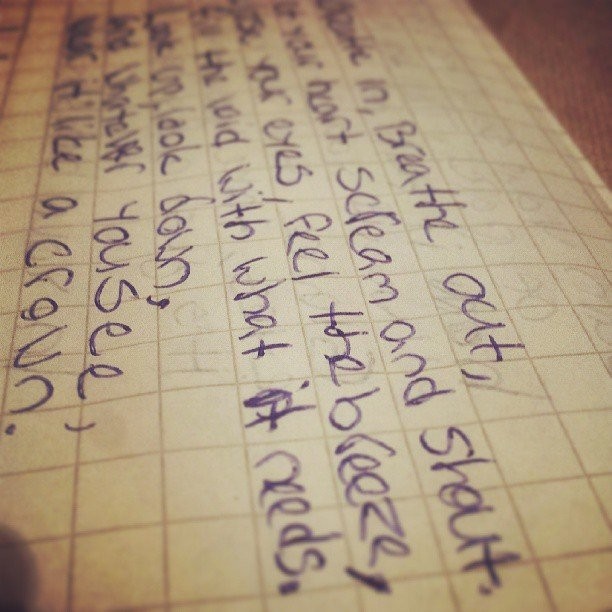 Breathe in, Breathe out,
Let your heart scream and shout.
Close your eyes, feel the breeze,
Fill the void with what it needs.
Look up, look down,
whatever you see,
wear it like a crown.